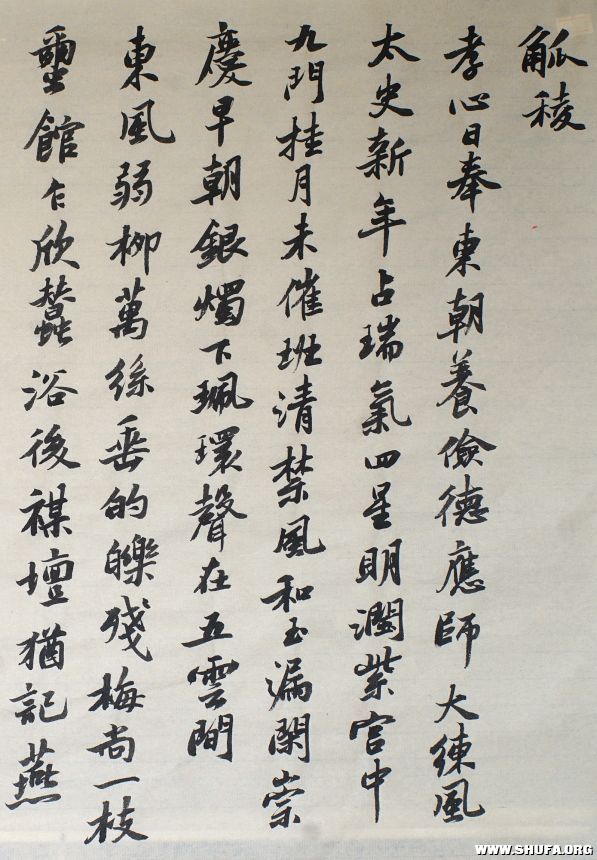 觚稜
孝心日奉東朝養儉德應師大練風
太史新年占瑞氣四星明潤紫宫中
九門挂月未催班清禁風和玉漏閑崇
慶早朝銀燭下珮環聲在五雲間
東風弱柳萬絲垂的皪殘梅尚一枝
璽館乍欣蠶浴後禖壇猶記燕
WWW.SHUFA.ORG